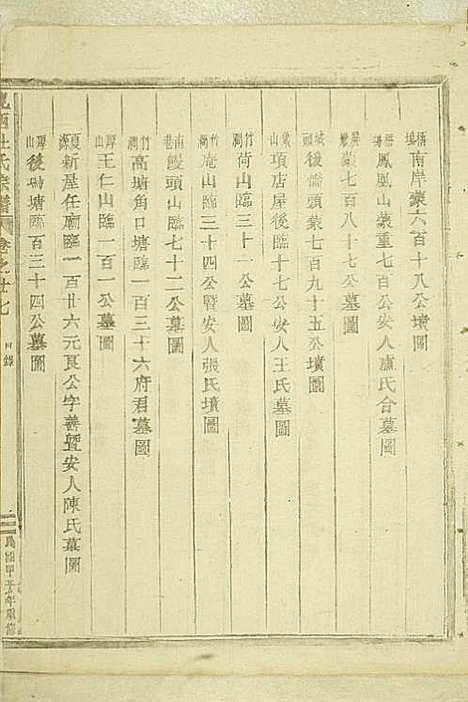 南岸蒙六百十八公墳圖
鳳凰山蒙重七百公安人盧氏合墓圖
蒙七百八十七公墓圖
後橋頭蒙七百九十五公墳圖
項店屋後臨十七公安人王氏墓圖
竹澗 荷山臨三十一公墓圖
竹澗 庵山臨三十四公暨安人張氏墳圖
南巷 饅頭山臨七十二公墓圖
竹澗 高塘角口塘臨一百三十六府君墓圖
潭山 王仁山臨一百一公墓圖
夏源 新屋任廟臨一百廿六元良公字善暨安人陳氏墓圖
潭山 後塢塘臨一百三十四公墓圖
西杜氏宗譜 卷之廿七 目錄
民國甲子年重修